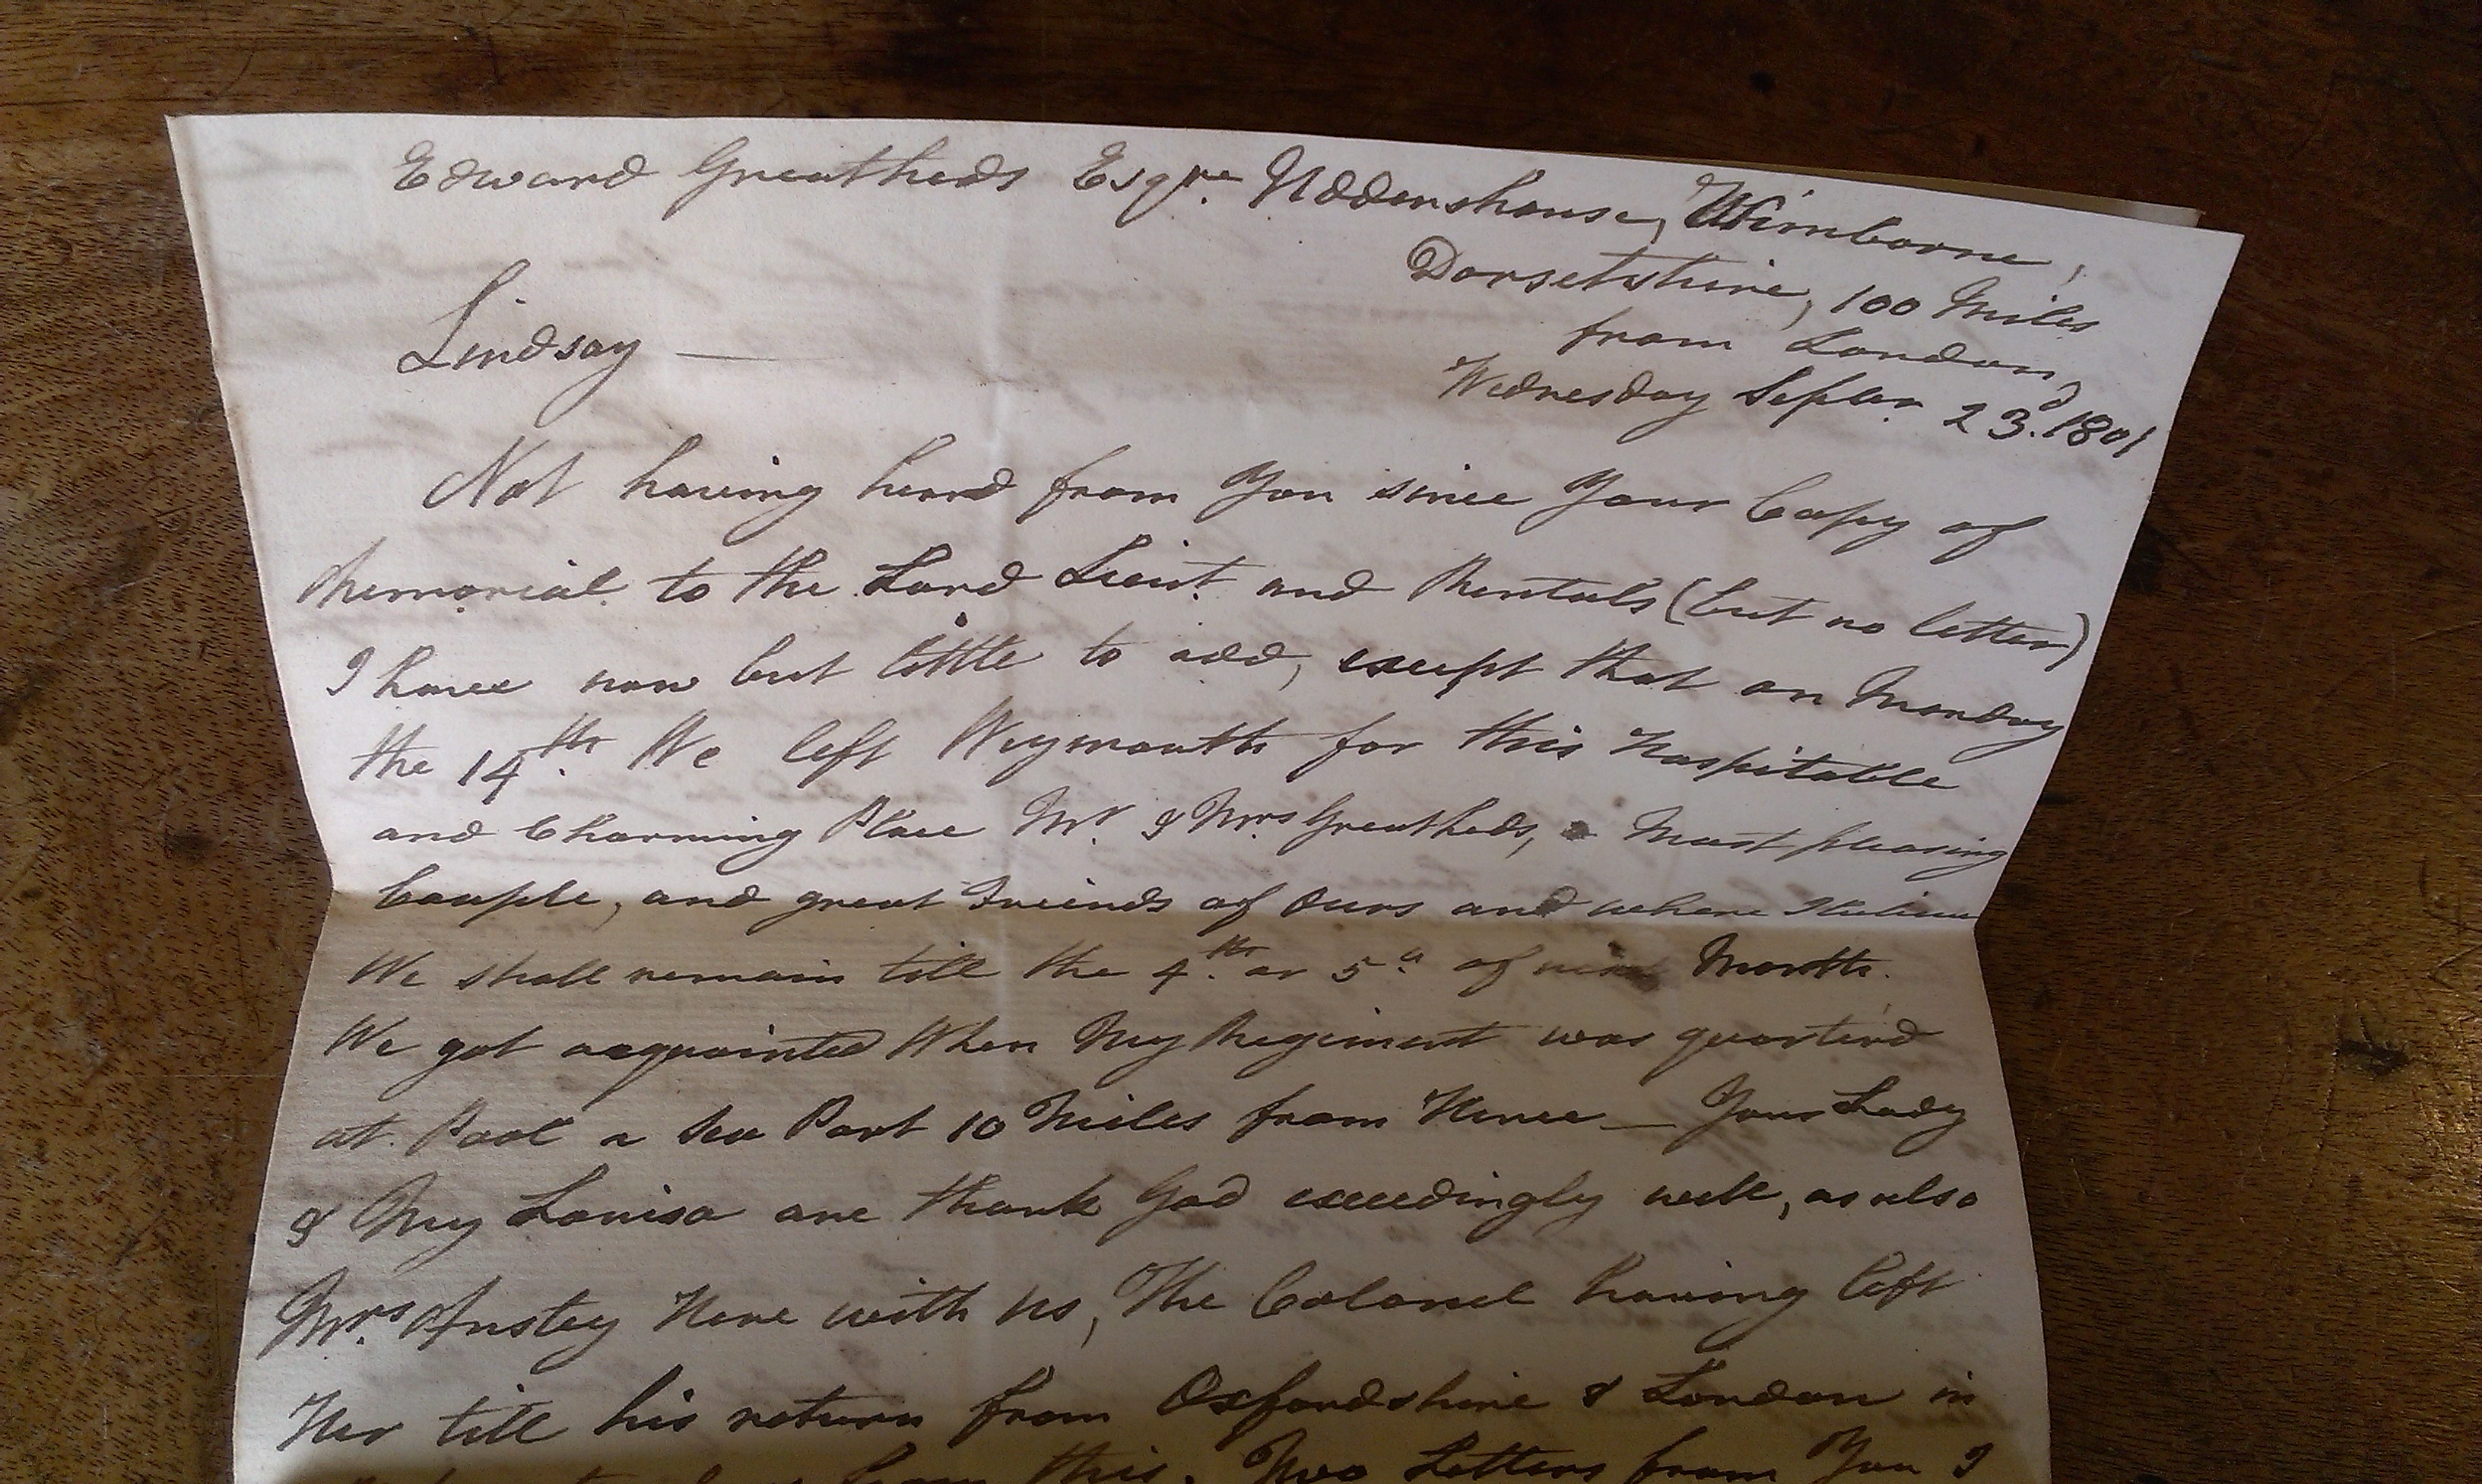 Edward Greatheds Esqre. Uddenshouse, Wimborne,
Dorsetshire, 100 Miles
from London,
Wednesday Septer. 23d. 1801
Lindsay —
Not having heard from You since Your Copy of
Memorial to the Lord Lieut. and Rentals (but no letter)
I have now but little to add, except that on Monday
the 14th. We left Weymouth for this Hospitable
and Charming Place Mr. & Mrs. Greatheds, a Most pleasing
Couple, and great Friends of Ours and where
We shall remain till the 4th. or 5th. of next Month.
We got acquainted When My Regiment was quarter'd
at Pool a Sea Port 10 Miles from Hence — Your Lady
& My Louisa are thank God exceedingly well, as also
Mrs. Anstey Here with Us, The Colonel having left
Her till his return from Oxfordshire & London in
this. Two Letters from You I